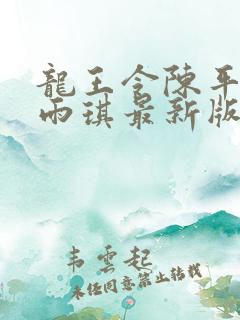 龍王令陳平
雨琪最新版
韦雲起
未经同意禁止转载